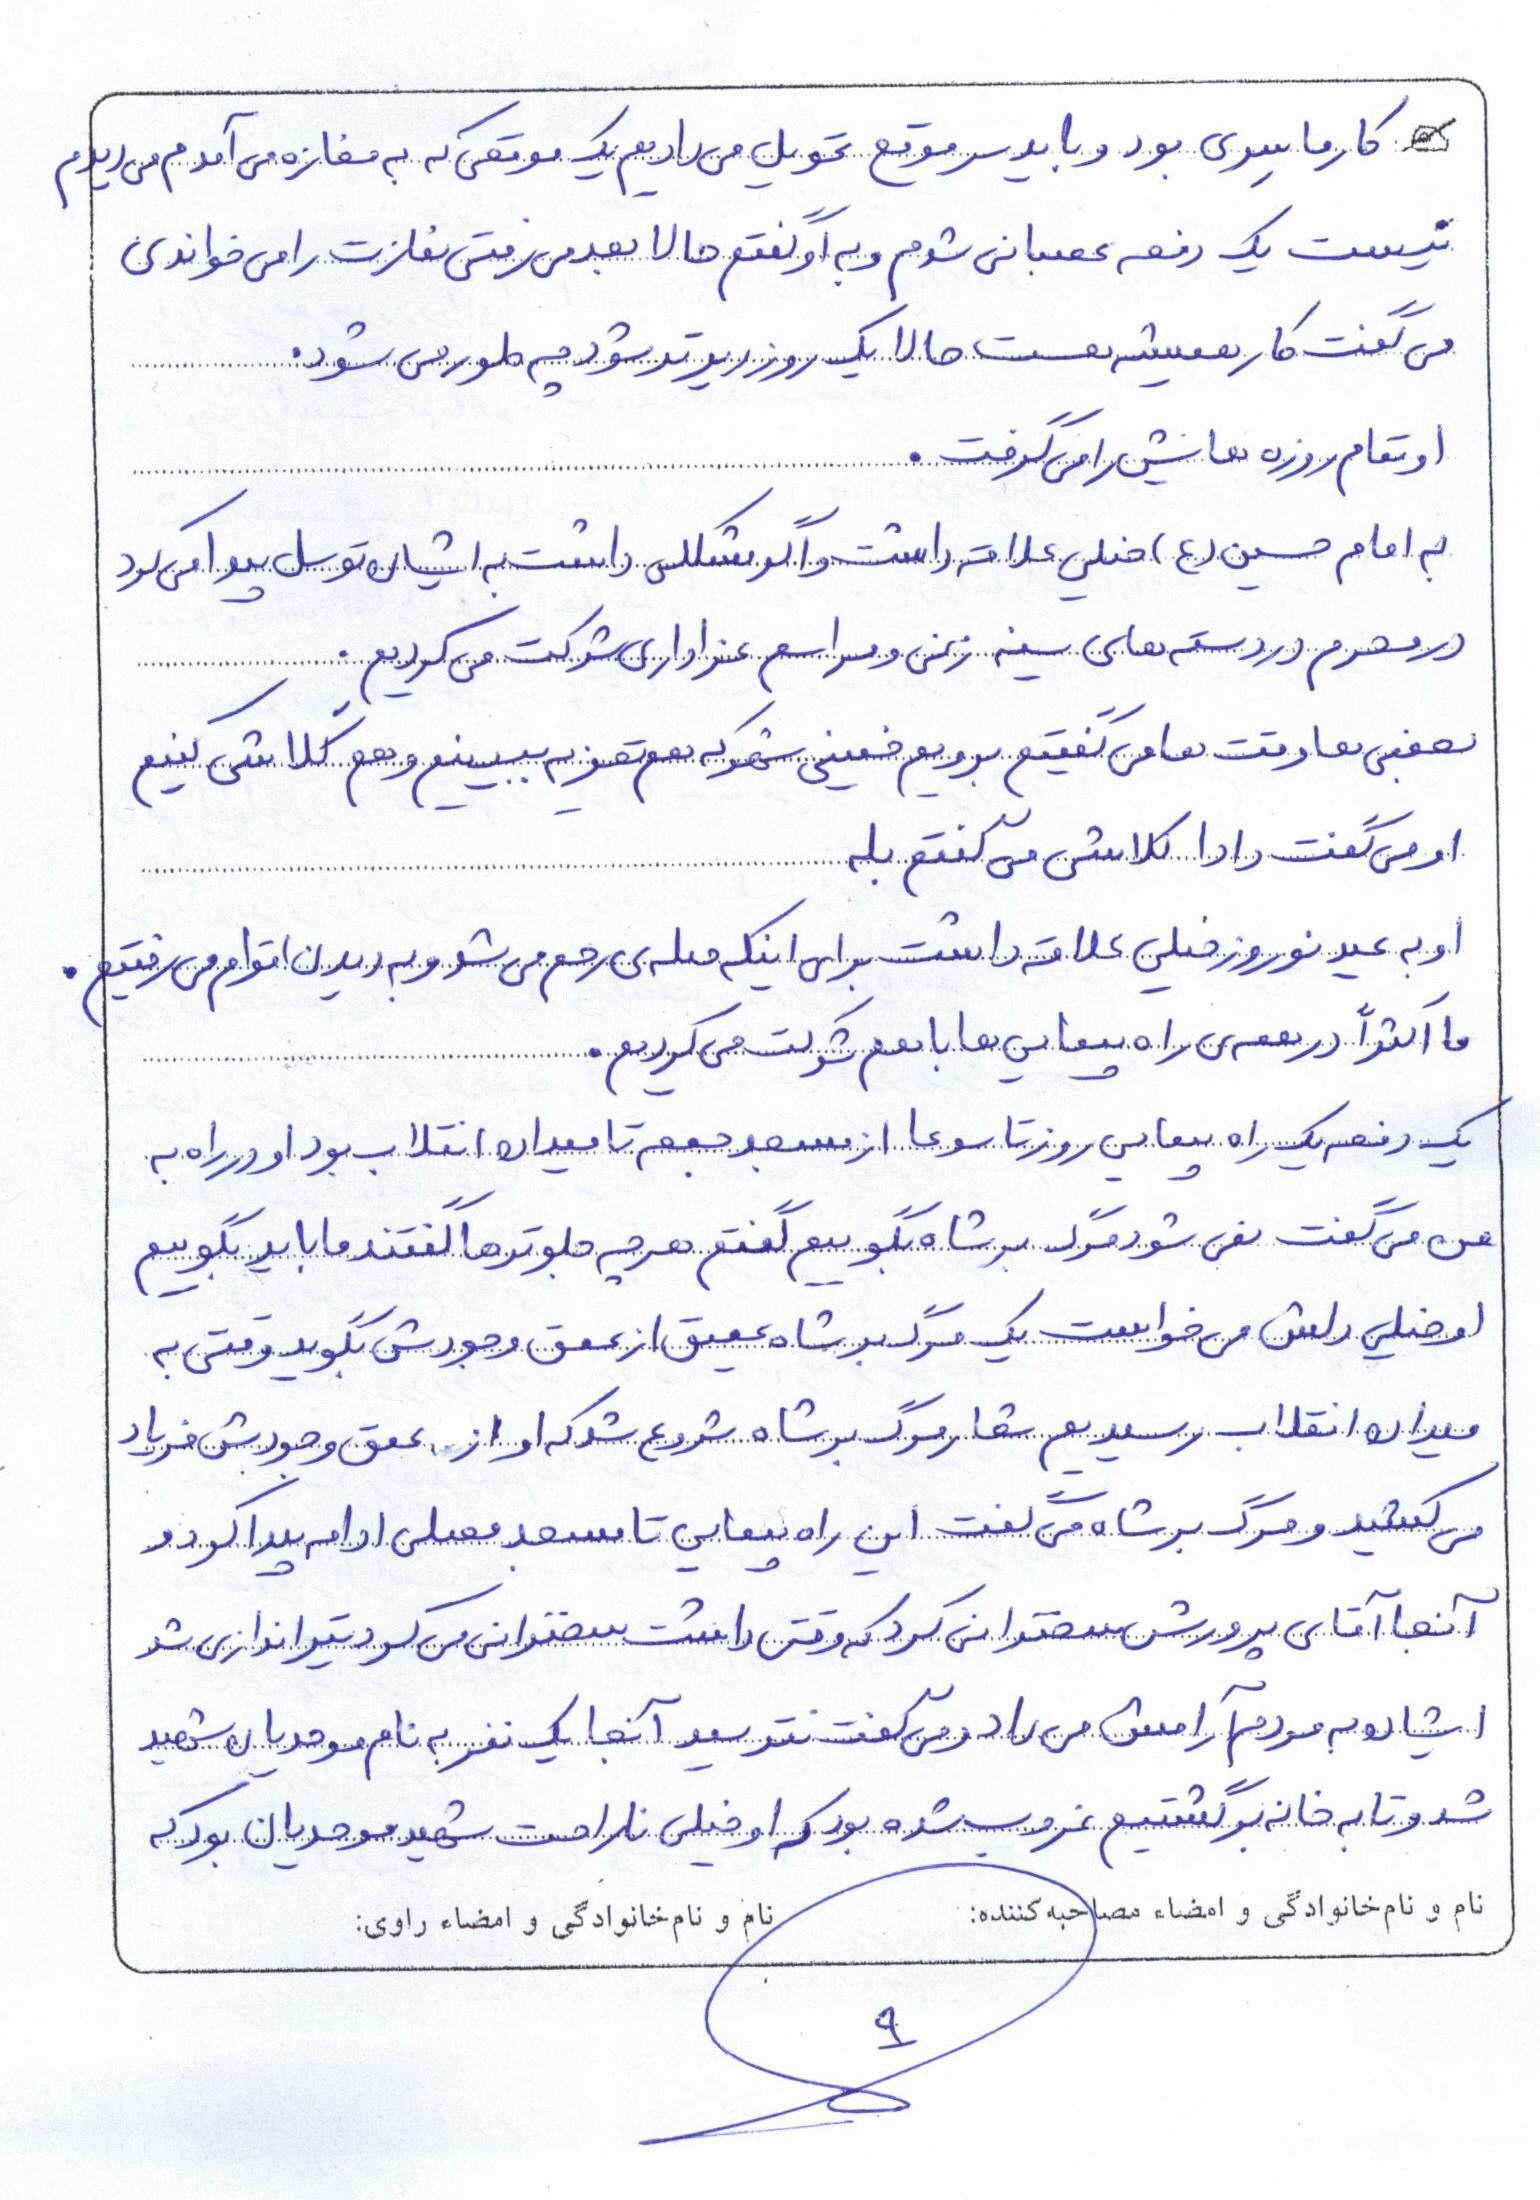 کار ما سِری بود و باید سر موقع تحویل می دادیم یک موقعی که به مغازه می آمدم می دیدم
نیست یک دفعه عصبانی شدم و به او گفتم حالا بعد می رفتی نمازت را می خواندی
می گفت کار همیشه هست حالا یک روز دیرتر شود چه طور می شود.
او تمام روزه هایش را می گرفت.
به امام حسین (ع) خیلی علاقه داشت و اگر مشکلی داشت به ایشان توسل پیدا می کرد
در محرم در دسته های سینه زنی و مراسم عزاداری شرکت می کردیم.
بعضی ها وقت ها می گفتیم برویم خمینی شهر که هم تعزیه ببینیم و هم گلاشی کنیم
او می گفت دادا گلاشی می گفتم بله
او به عید نوروز خیلی علاقه داشت برای اینکه صله ی رحم می شد و به دیدن اقوام می رفتیم.
ما اکثراً در همه ی راه پیمایی ها با هم شرکت می کردیم.
یک دفعه یک راه پیمایی روز تاسوعا از مسجد جمعه تا میدان انقلاب بود او در راه به
من می گفت نمی شود مرگ بر شاه بگوییم گفتم هر چه جلوترها گفتند ما باید بگوییم
او خیلی دلش می خواست یک مرگ بر شاه عمیق از عمق وجودش بگوید وقتی به
میدان انقلاب رسیدیم شعار مرگ بر شاه شروع شد که او از عمق وجودش فریاد
می کشید و مرگ بر شاه می گفت این راه پیمایی تا مسجد مصلی ادامه پیدا کرد و
آنجا آقای پرورش سخنرانی کرد که وقتی داشت سخنرانی می کرد تیراندازی شد
ایشان به مردم آرامش می داد و می گفت نترسید آنجا یک نفر به نام موحدیان شهید
شد و تا به خانه برگشتیم غروب شده بود که او خیلی ناراحت شهید موحدیان بود که
نام و نام خانوادگی و امضاء مصاحبه کننده: نام و نام خانوادگی و امضاء راوی:
۹